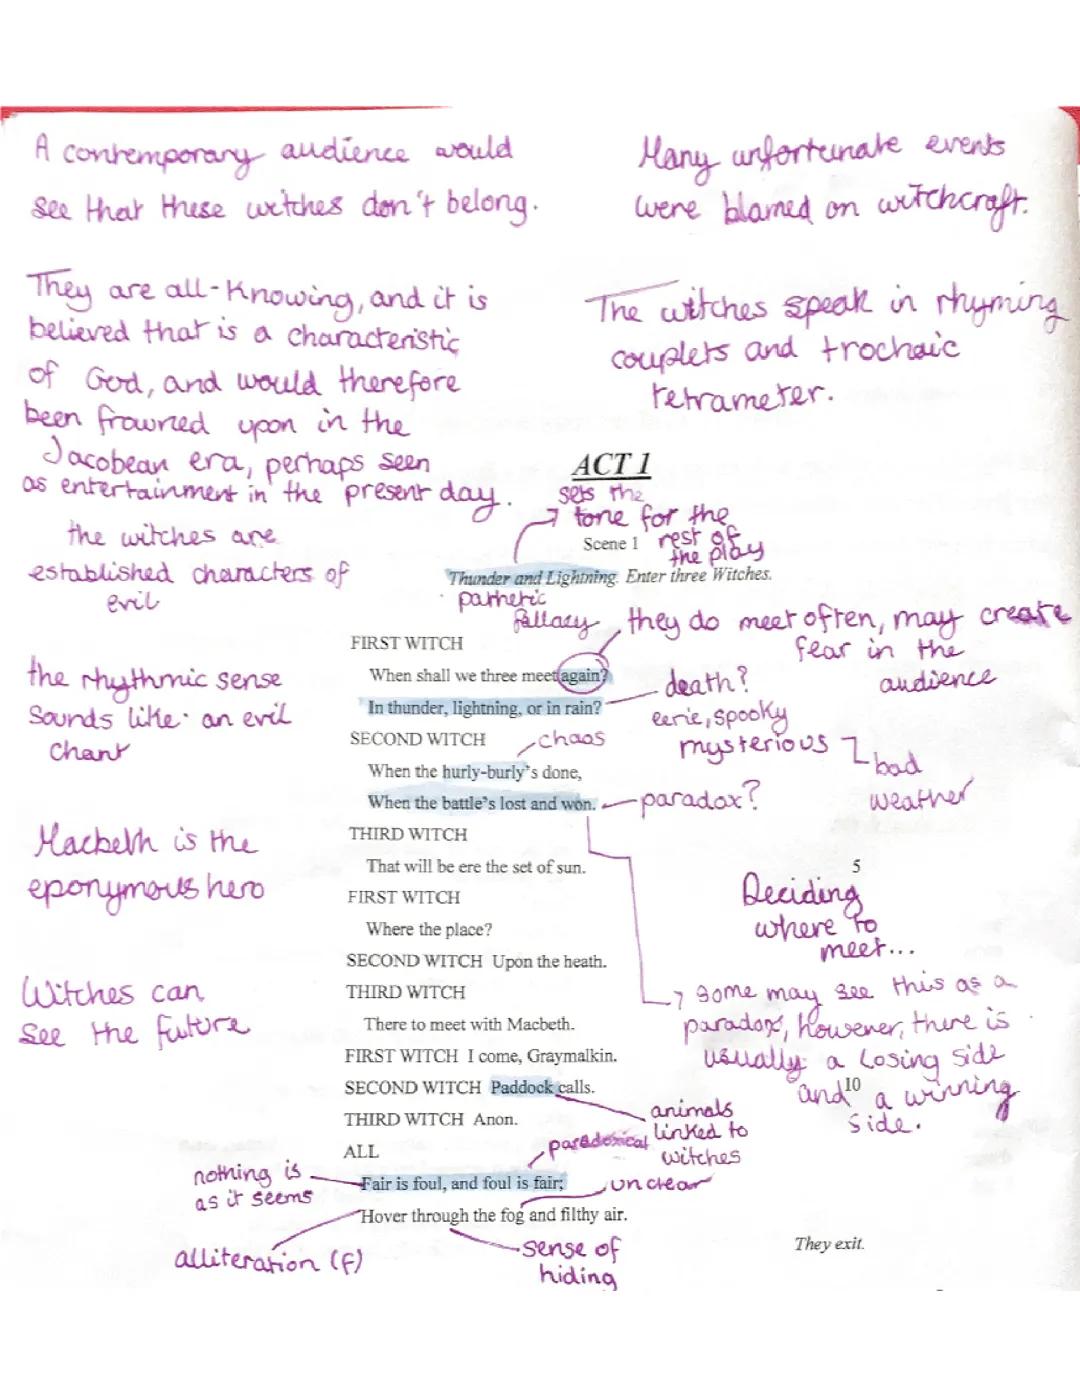 A contemporary audience would
see that these witches don't belong.
Many unfortunate events
were blamed on witchcraft.
They are all-knowing, and it is
believed that is a characteristic
of God, and would therefore
been frowned upon in the
Jacobean era, perhaps seen
as entertainment in the present day.
The witches speak in rhyming
couplets and trochaic
tetrameter.
ACT 1
sets the
tone for the
rest of
the play
Scene 1
the witches are
established characters of
evil
Thunder and Lightning. Enter three Witches.
pathetic
fallacy
they do meet often, may create
fear in the
audience
FIRST WITCH
When shall we three meet again?
In thunder, lightning, or in rain?
death?
eerie, spooky
mysterious
bad
weather
the rhythmic sense
sounds like an evil
chant
SECOND WITCH
chaos
When the hurly-burly's done,
When the battle's lost and won.
paradox?
THIRD WITCH
That will be ere the set of sun.
5
Macbeth is the
eponymous hero
FIRST WITCH
Where the place?
Deciding
where to
meet...
SECOND WITCH Upon the heath.
THIRD WITCH
There to meet with Macbeth.
Witches can
see the future
some may see this as a
paradox, however, there is
usually a losing side
and a winning
side.
FIRST WITCH I come, Graymalkin.
SECOND WITCH Paddock calls.
10
THIRD WITCH Anon.
animals
linked to
witches
ALL
paradoxical
nothing is
as it seems
Fair is foul, and foul is fair;
unclear
Hover through the fog and filthy air.
alliteration (f)
sense of
hiding
They exit.